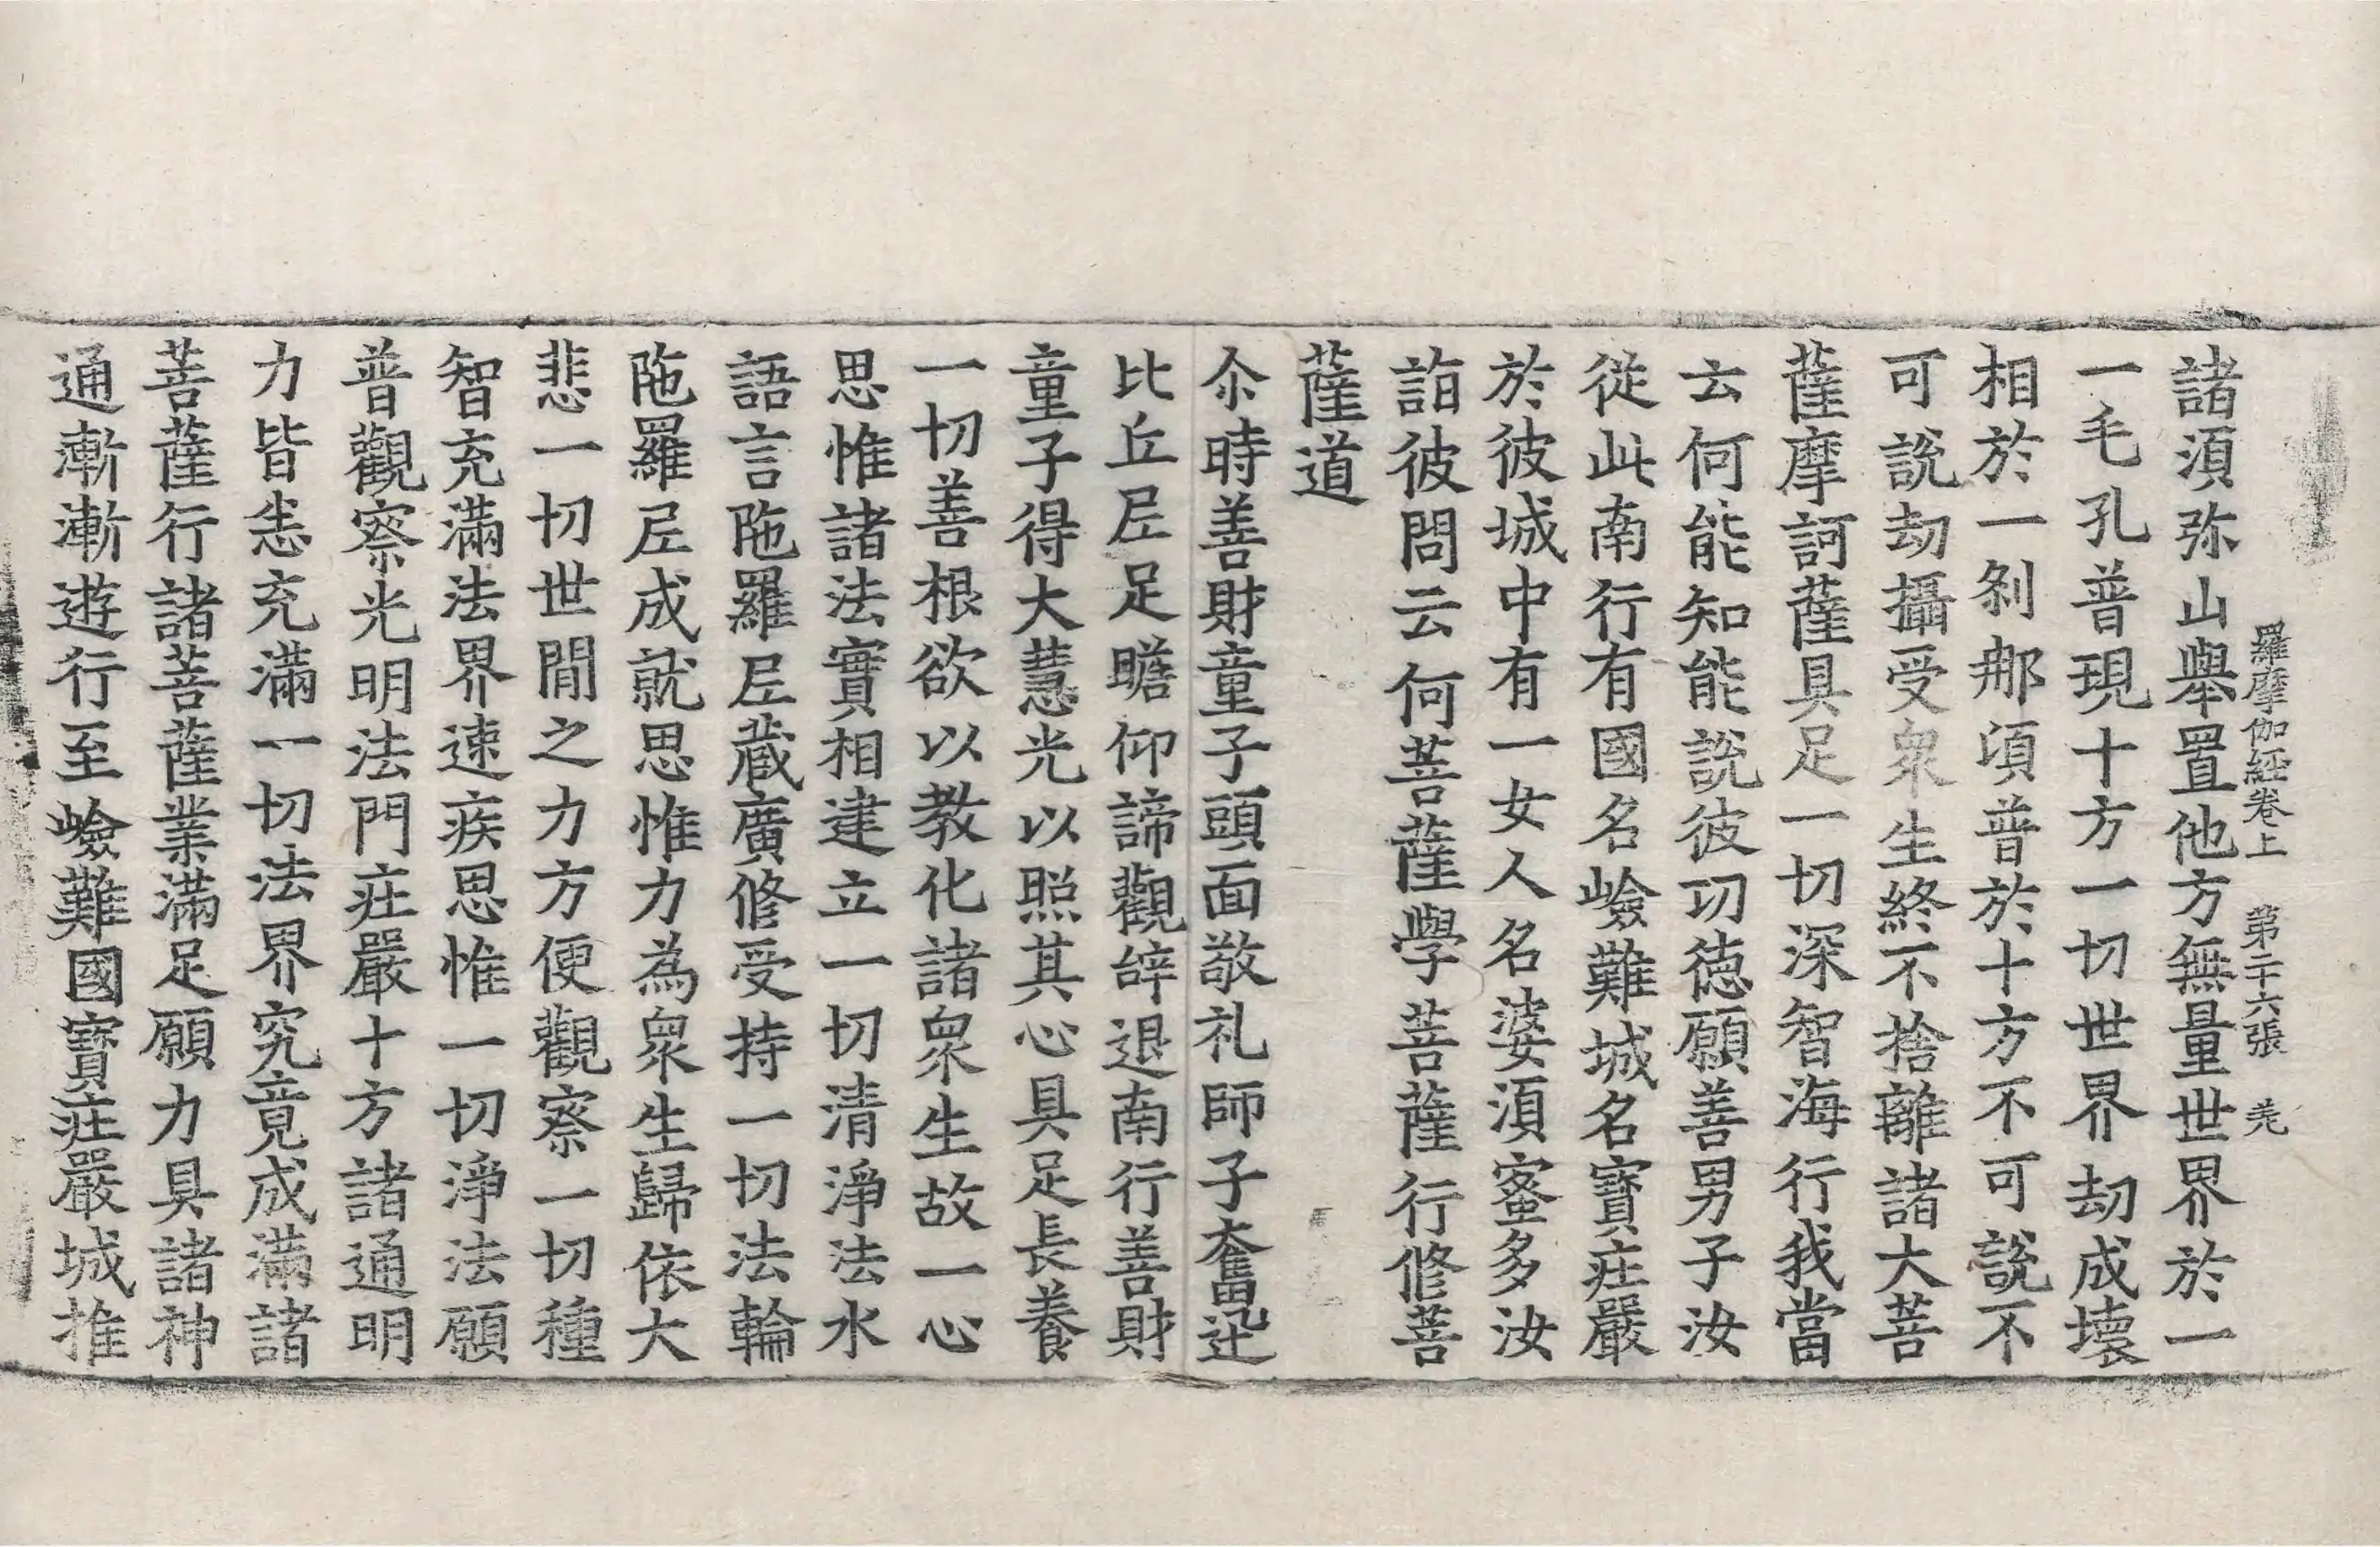 羅摩伽経卷上 第二十六張 羌
諸湏弥山舉置他方無量世界於一
一毛孔普現十方一切世界劫成壞
相於一剎那頃普於十方不可說不
可說劫攝受衆生終不捨離諸大菩
薩摩訶薩具足一切深智海行我當
云何能知能說彼功德願善男子汝
從此南行有國名嶮難城名寶庄嚴
於彼城中有一女人名婆湏蜜多汝
詣彼問云何菩薩學菩薩行修菩
薩道
尒時善財童子頭面敬礼師子奮迅
比丘尼足瞻仰諦觀辞退南行善財
童子得大慧光以照其心具足長養
一切善根欲以教化諸衆生故一心
思惟諸法實相建立一切清淨法水
語言陁羅尼藏廣修受持一切法輪
陁羅尼成就思惟力為衆生歸依大
悲一切世閒之力方便觀察一切種
智充滿法界速疾思惟一切淨法願
普觀察光明法門庄嚴十方諸通明
力皆悉充滿一切法界究竟成滿諸
菩薩行諸菩薩業滿足願力具諸神
通漸漸遊行至嶮難國寶庄嚴城推